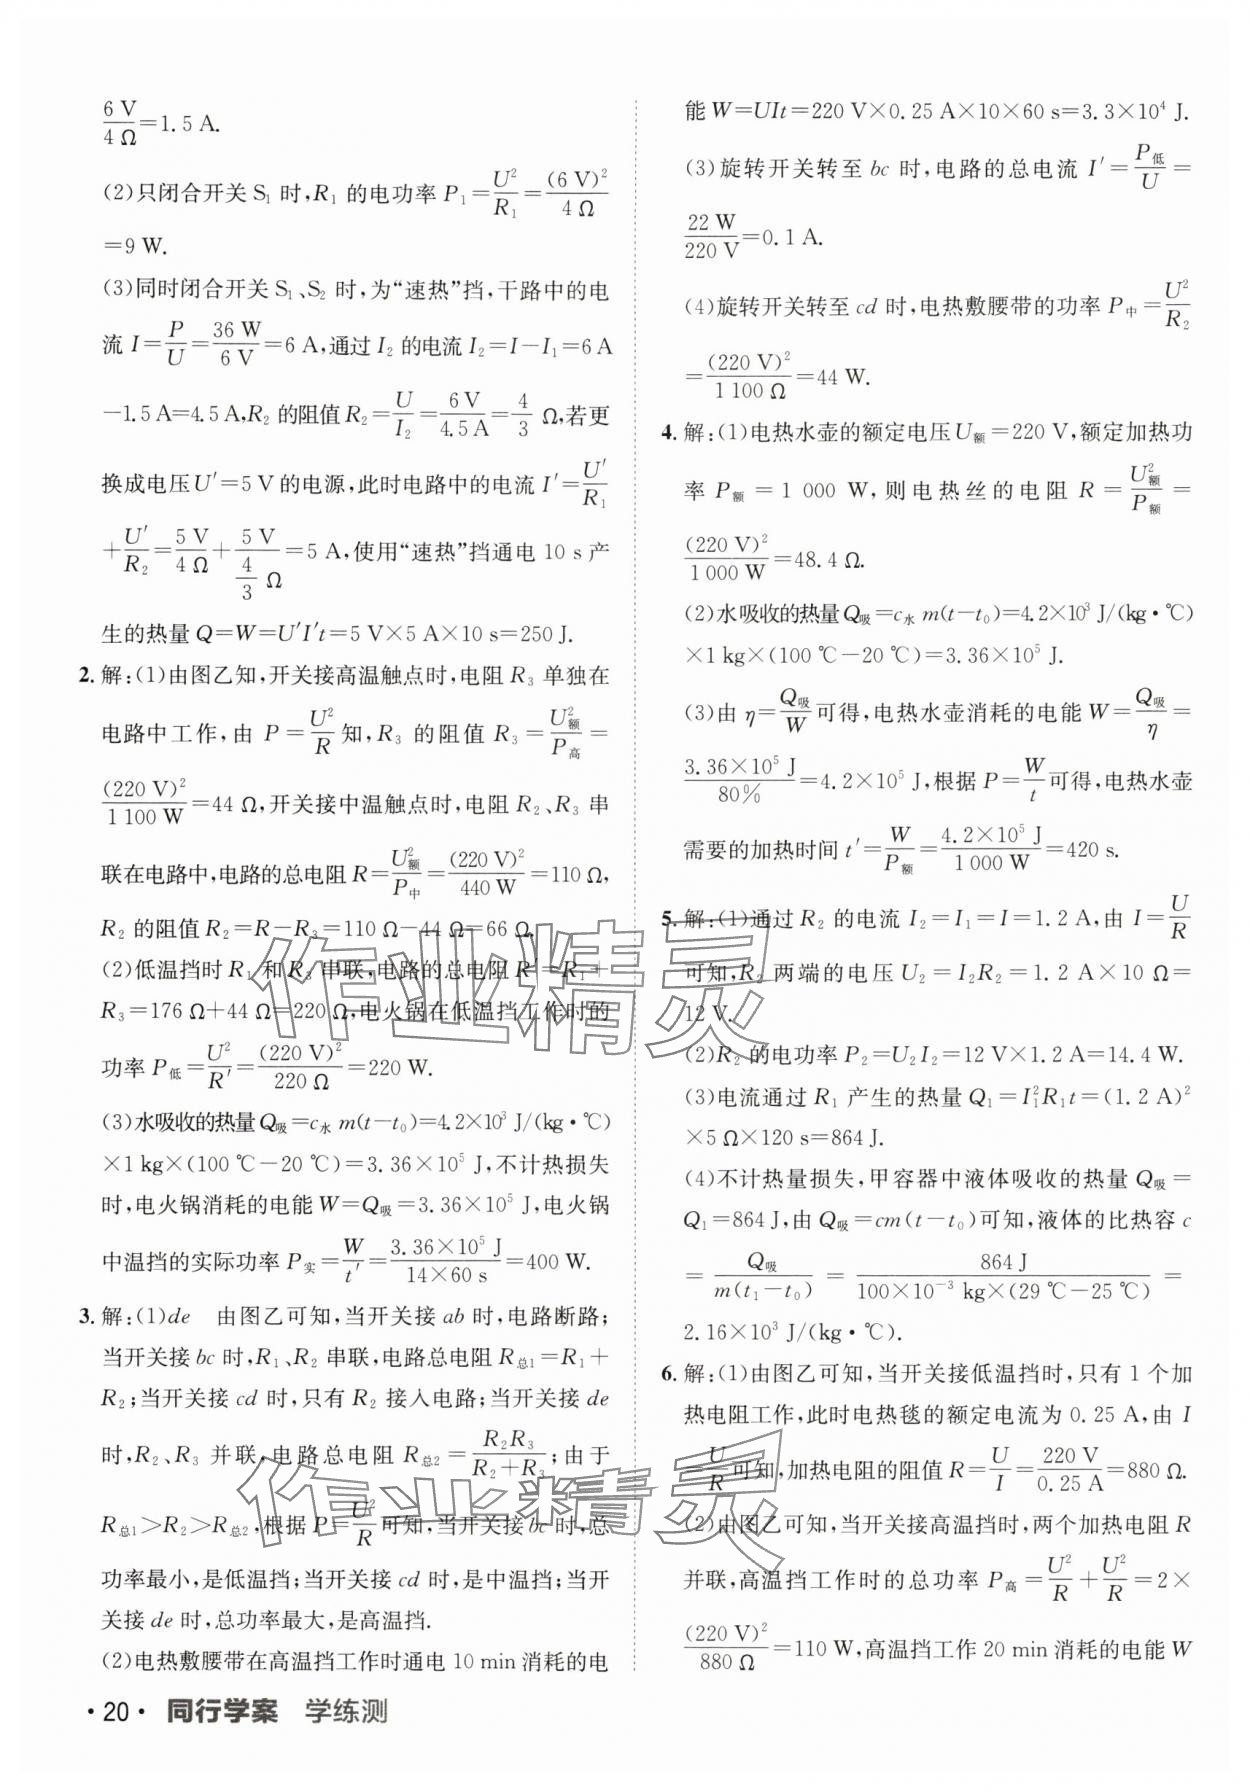 6 V/4 Ω=1.5 A.
(2)只闭合开关 S₁ 时,R₁ 的电功率 P₁=U²/R₁=(6 V)²/4 Ω
=9 W.
(3)同时闭合开关 S₁、S₂ 时,为“速热”挡,干路中的电
流 I=P/U=36 W/6 V=6 A,通过 I₂ 的电流 I₂=I-I₁=6 A
-1.5 A=4.5 A,R₂ 的阻值 R₂=U/I₂=6 V/4.5 A=4/3 Ω,若更
换成电压 U′=5 V 的电源,此时电路中的电流 I′=U′/R₁
+U′/R₂=5 V/4 Ω+5 V/(4/3 Ω)=5 A,使用“速热”挡通电 10 s 产
生的热量 Q=W=U′I′t=5 V×5 A×10 s=250 J.
2. 解:(1)由图乙知,开关接高温触点时,电阻 R₃ 单独在
电路中工作,由 P=U²/R 知,R₃ 的阻值 R₃=U额²/P高=
(220 V)²/1 100 W=44 Ω,开关接中温触点时,电阻 R₂、R₃ 串
联在电路中,电路的总电阻 R=U额²/P中=(220 V)²/440 W=110 Ω,
R₂ 的阻值 R₂=R-R₃=110 Ω-44 Ω=66 Ω.
(2)低温挡时 R₁ 和 R₃ 串联,电路的总电阻 R′=R₁+
R₃=176 Ω+44 Ω=220 Ω,电火锅在低温挡工作时的
功率 P低=U²/R′=(220 V)²/220 Ω=220 W.
(3)水吸收的热量 Q吸=c水 m(t-t₀)=4.2×10³ J/(kg·℃)
×1 kg×(100 ℃-20 ℃)=3.36×10⁵ J,不计热损失
时,电火锅消耗的电能 W=Q吸=3.36×10⁵ J,电火锅
中温挡的实际功率 P实=W/t′=3.36×10⁵ J/14×60 s=400 W.
3. 解:(1)de 由图乙可知,当开关接 ab 时,电路断路;
当开关接 bc 时,R₁、R₂ 串联,电路总电阻 R总1=R₁+
R₂;当开关接 cd 时,只有 R₂ 接入电路;当开关接 de
时,R₂、R₃ 并联,电路总电阻 R总2=R₂R₃/R₂+R₃;由于
R总1>R₂>R总2,根据 P=U²/R可知,当开关接 bc 时,总
功率最小,是低温挡;当开关接 cd 时,是中温挡;当开
关接 de 时,总功率最大,是高温挡.
(2)电热敷腰带在高温挡工作时通电 10 min 消耗的电
·20· 同行学案 学练测
能 W=UIt=220 V×0.25 A×10×60 s=3.3×10⁴ J.
(3)旋转开关转至 bc 时,电路的总电流 I′=P低/U=
22 W/220 V=0.1 A.
(4)旋转开关转至 cd 时,电热敷腰带的功率 P中=U²/R₂
=(220 V)²/1 100 Ω=44 W.
4. 解:(1)电热水壶的额定电压 U额=220 V,额定加热功
率 P额=1 000 W,则电热丝的电阻 R=U额²/P额=
(220 V)²/1 000 W=48.4 Ω.
(2)水吸收的热量 Q吸=c水 m(t-t₀)=4.2×10³ J/(kg·℃)
×1 kg×(100 ℃-20 ℃)=3.36×10⁵ J.
(3)由 η=Q吸/W可得,电热水壶消耗的电能 W=Q吸/η=
3.36×10⁵ J/80%=4.2×10⁵ J,根据 P=W/t可得,电热水壶
需要的加热时间 t′=W/P额=4.2×10⁵ J/1 000 W=420 s.
5. 解:(1)通过 R₂ 的电流 I₂=I₁=I=1.2 A,由 I=U/R
可知,R₂ 两端的电压 U₂=I₂R₂=1.2 A×10 Ω=
12 V.
(2)R₂ 的电功率 P₂=U₂I₂=12 V×1.2 A=14.4 W.
(3)电流通过 R₁ 产生的热量 Q₁=I₁²R₁t=(1.2 A)²
×5 Ω×120 s=864 J.
(4)不计热量损失,甲容器中液体吸收的热量 Q吸=
Q₁=864 J,由 Q吸=cm(t-t₀)可知,液体的比热容 c
=Q吸/m(t₁-t₀)=864 J/100×10⁻³ kg×(29 ℃-25 ℃)=
2.16×10³ J/(kg·℃).
6. 解:(1)由图乙可知,当开关接低温挡时,只有 1 个加
热电阻工作,此时电热毯的额定电流为 0.25 A,由 I
=U/R可知,加热电阻的阻值 R=U/I=220 V/0.25 A=880 Ω.
(2)由图乙可知,当开关接高温挡时,两个加热电阻 R
并联,高温挡工作时的总功率 P高=U²/R+U²/R=2×
(220 V)²/880 Ω=110 W,高温挡工作 20 min 消耗的电能 W
作业精灵
作业精灵